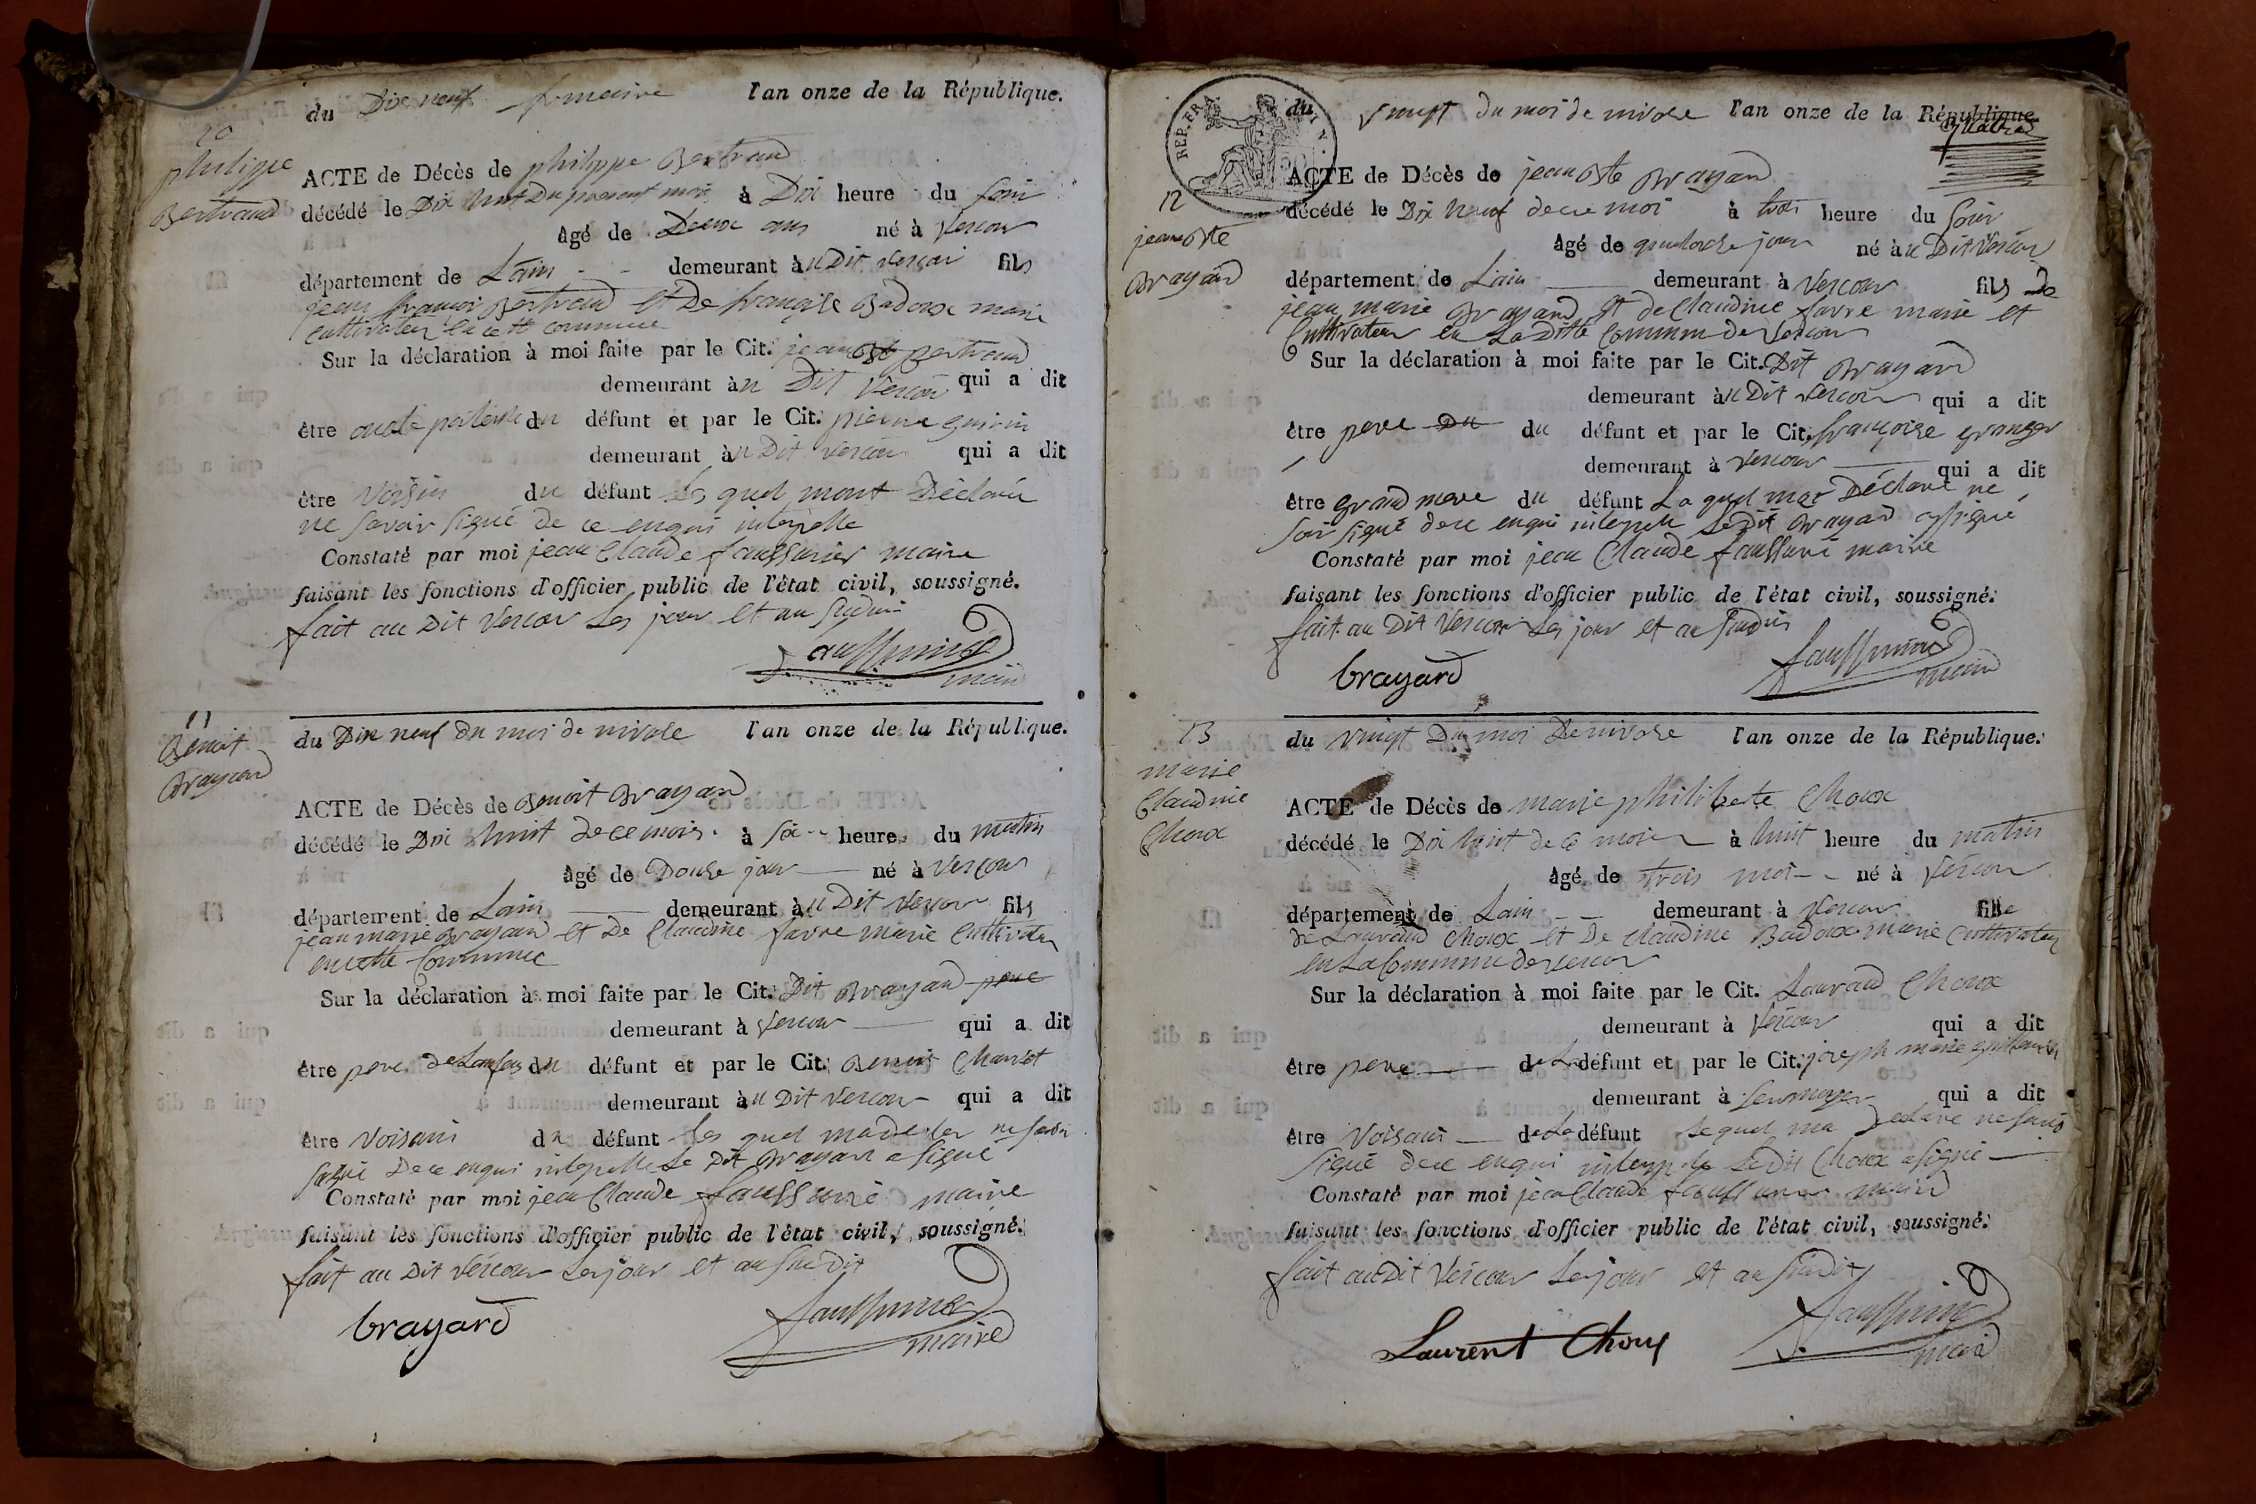 du Dix neuf frimaire l'an onze de la République.
20
philippe
Bertraud
ACTE de Décès de philippe Bertraud
décédé le Dix huit Du present mois à Dix heure du soir
âgé de Deux ans né à Vescour
département de Lain demeurant àu Dit Vescour fils
jean françois Bertraud et De françoise Badoux marié
Cultivateur en cette commune
Sur la déclaration à moi faite par le Cit. jean Bte Bertraud
demeurant àu Dit Vescour qui a dit
être du défunt et par le Cit. pierre guirin
demeurant àu Dit Vescour qui a dit
être Voisin du défunt Les quel mont Déclaré
ne savoir signé de ce enqui interpelle
Constaté par moi jean Claude faussurier maire
faisant les fonctions d'officier public de l'état civil, soussigné.
fait au Dit Vescour Les jour et an susdit
faussurier
maire
11
Benoit
Brayard
du Dix neuf du mois de nivose l'an onze de la République.
ACTE de Décès de Benoit Brayard
décédé le Dix huit de ce mois à six heure du matin
âgé de Douse jour né à Vescour
département de Lain demeurant àu Dit Vescour fils
jean marie Brayard et De Claudine favre marié Cultivateur
en cette Commune
Sur la déclaration à moi faite par le Cit. Dit Brayard pere
demeurant à Vescour qui a dit
être pere de Lenfan du défunt et par le Cit. Benoit Charvet
demeurant àu Dit Vescour qui a dit
être Voisain du défunt les quel ne savoir
signé De ce enqui interpelle Le Dit Brayard a signé
Constaté par moi jean Claude faussurié maire
faisant les fonctions d'officier public de l'état civil, soussigné.
fait au Dit Vescour Les jour et an susdit
brayard
faussurier
maire
REP. FRA.
du Vingt du moi de nivose l'an onze de la République
12
jean Bte
Brayard
ACTE de Décès de jean Bte Brayard
décédé le Dix neuf de ce moi à trois heure du soir
âgé de quatorse jour né àu Dit Vescour
département de Lain demeurant à Vescour fils de
jean marie Brayard et de Claudine favre marié et
Cultivateur en La Ditte Commun de Vescour
Sur la déclaration à moi faite par le Cit. Dit Brayard
demeurant àu Dit Vescour qui a dit
être pere du du défunt et par le Cit. françoise granger
demeurant à Vescour qui a dit
être grand mere du défunt La quel mat Déclaré ne
savoir signé de ce enqui interpelle Le Dit Brayard a signé
Constaté par moi jean Claude faussurié maire
faisant les fonctions d'officier public de l'état civil, soussigné.
fait au Dit Vescour Les jour et an susdit
brayard
faussurier
maire
13
marie
Claudine
Choux
du Vingt Du moi De nivose l'an onze de la République.
ACTE de Décès de marie philiberte Choux
décédé le Dix huit de ce mois à huit heure du matin
âgé de trois moi né à Vescour
département de Lain demeurant à Vescour fille
de Louraud Choux et De Claudine Badoux marié Cultivateur
en La Commune de Vescour
Sur la déclaration à moi faite par le Cit. Louraud Choux
demeurant à Vescour qui a dit
être pere de La défunt et par le Cit. joseph marie
demeurant à qui a dit
être Voisain de La défunt Le quel ma Déclaré ne savoir
signé de ce enqui interpelle Le Dit Choux a signé
Constaté par moi jean Claude faussurier maire
faisant les fonctions d'officier public de l'état civil, soussigné.
fait au Dit Vescour Les jour et an susdit
Laurent Choux
faussurier
maire